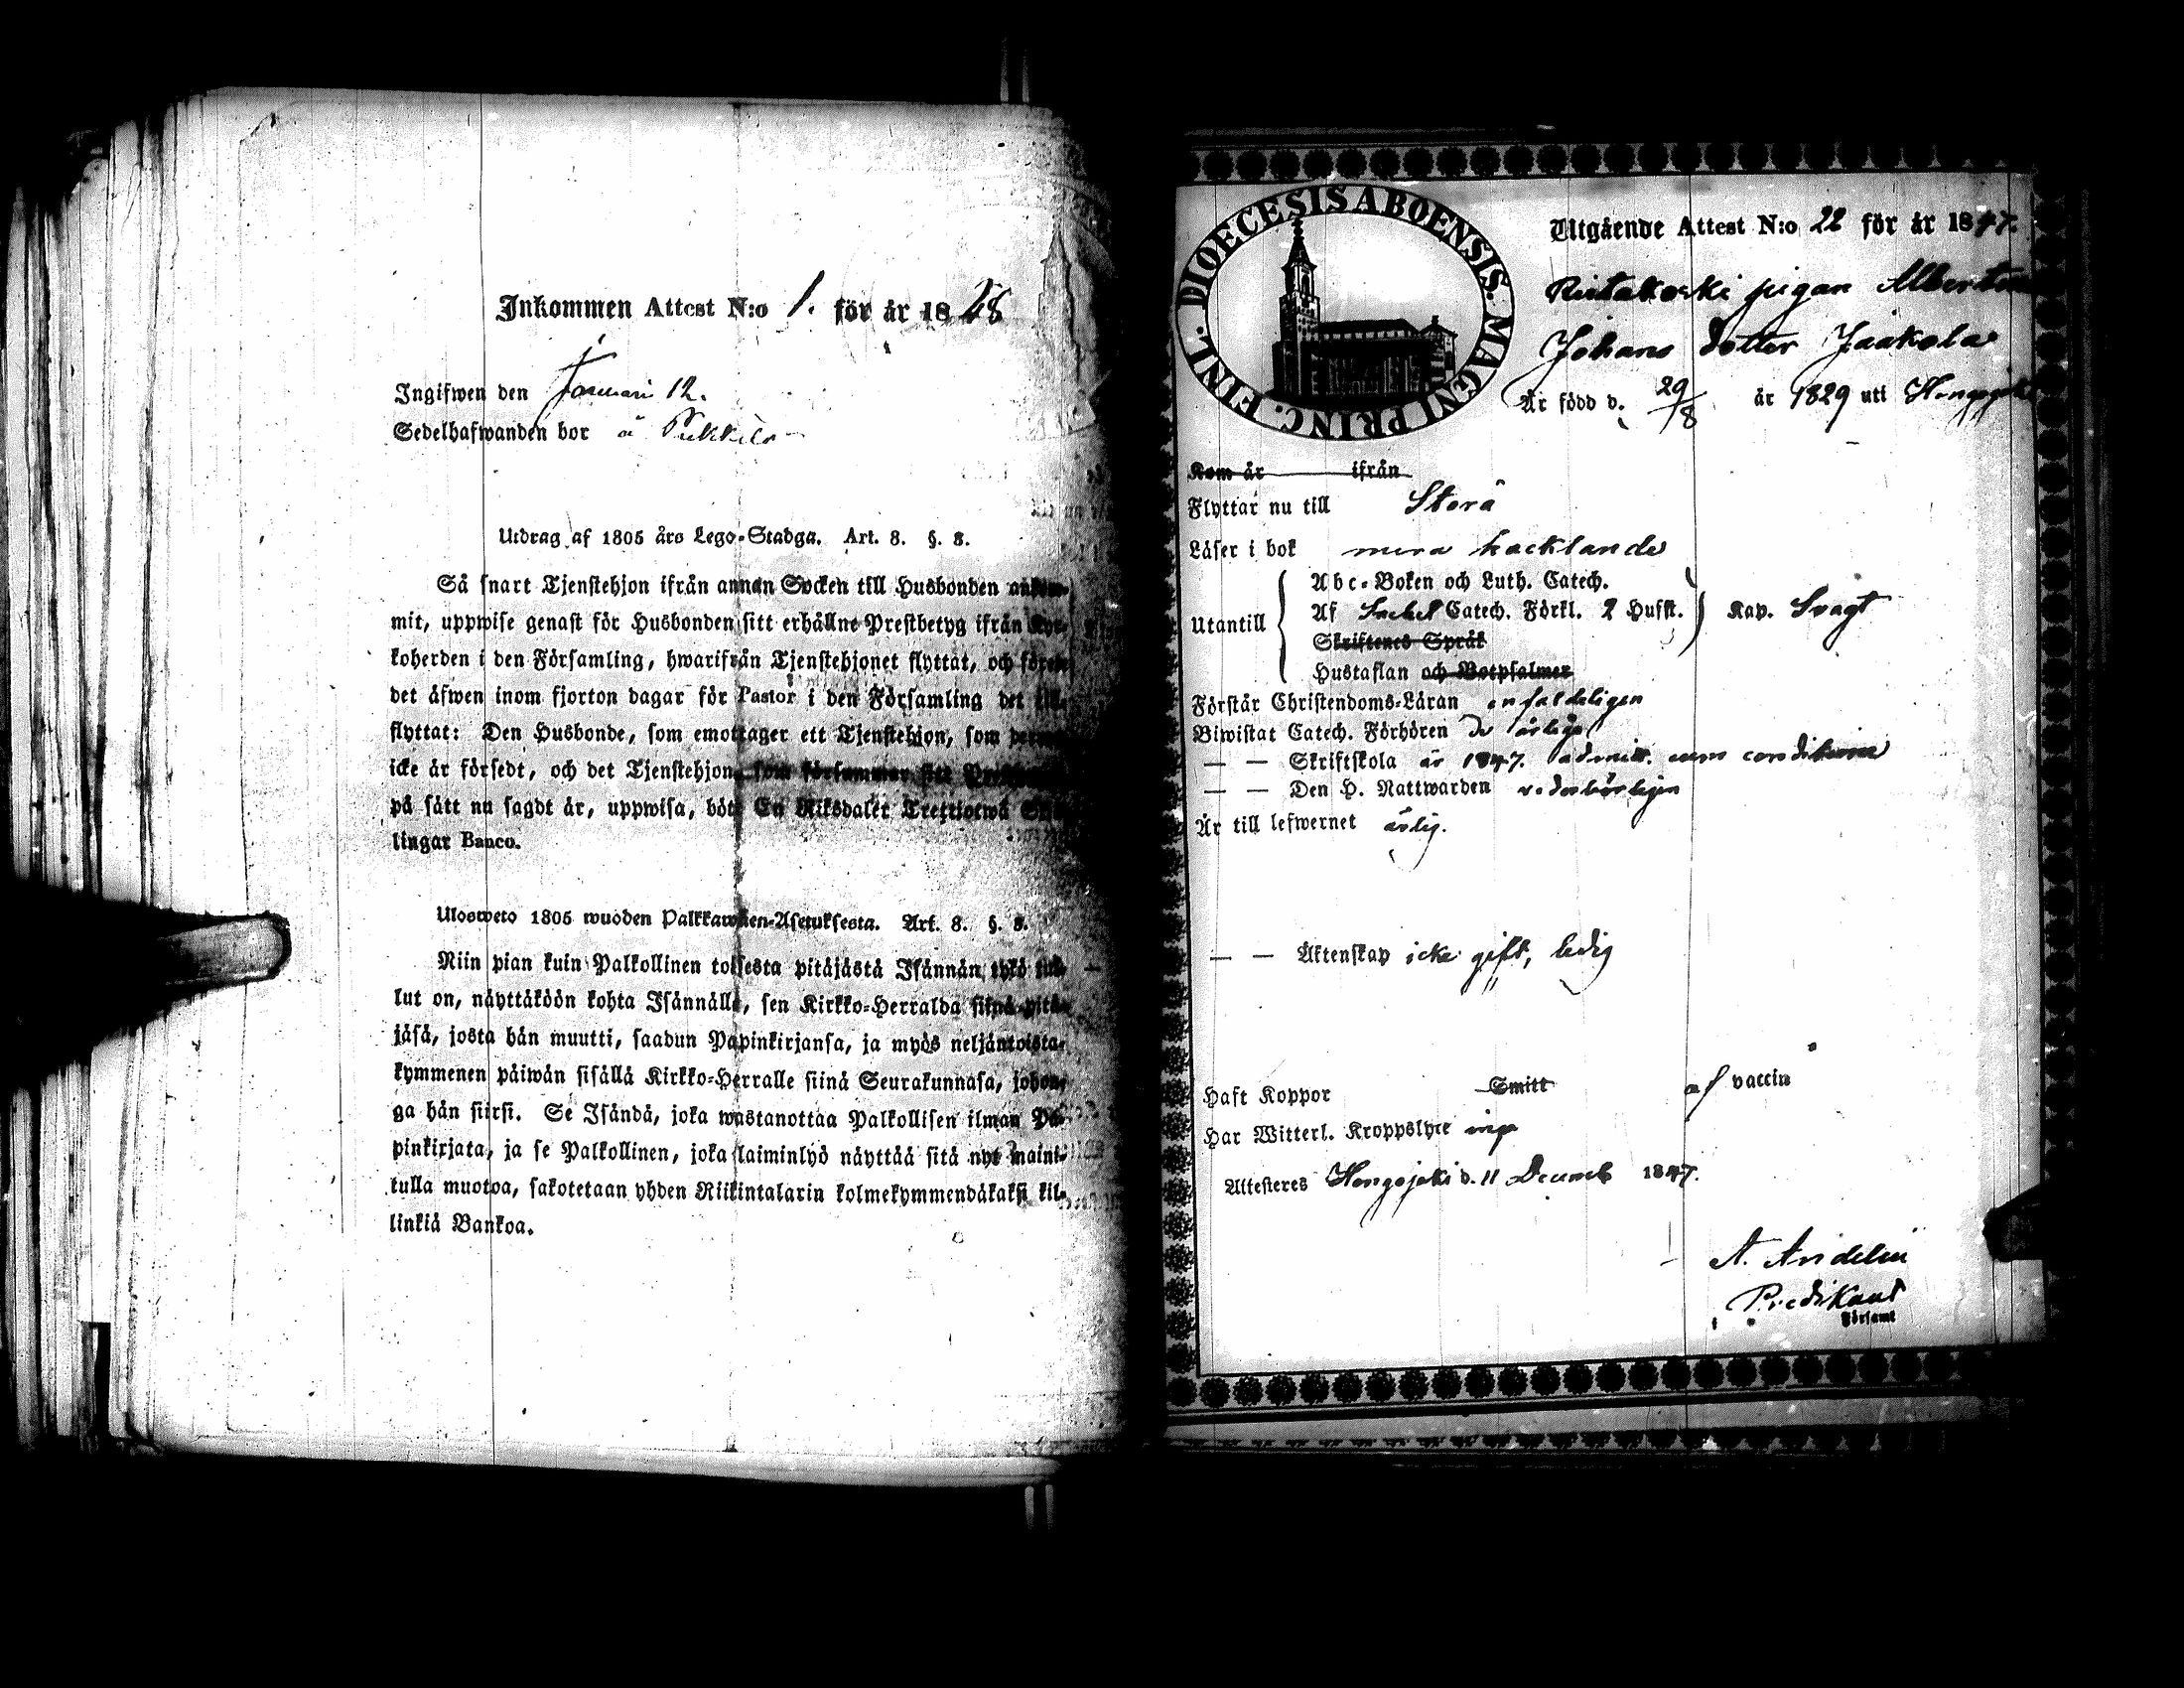 Inkommen Attest N:o 1. för år 1848
Ingifwen den Januari 12.
Sedelhafwanden bor å Pukkila
Utdrag af 1805 års Lego-Stadga. Art. 8. §. 8.
Så snart Tjenstehjon ifrån annan Socken till Husbonden ankom-
mit, uppwise genast för Husbonden sitt erhållne Prestbetyg ifrån Kyr-
koherden i den Församling, hwarifrån Tjenstehjonet flyttat, och förete
det äfwen inom fjorton dagar för Pastor i den Församling det
flyttat: Den Husbonde, som emottager ett Tjenstehjon, som
icke är försedt, och det Tjenstehjon, som försummar sitt
på sätt nu sagdt är, uppwisa, böte En Riksdaler Trettiotwå
lingar Banco.
Ulosweto 1805 wuoden Palkkawäen-Asetuksesta. Art. 8. §. 8.
Niin pian kuin Palkollinen toisesta pitäjästä Isännän tykö tul-
lut on, näyttäköön kohta Isännälle, sen Kirkko-Herralda siinä pitä-
jäsä, josta hän muutti, saadun Papinkirjansa, ja myös neljäntoista-
kymmenen päiwän sisällä Kirkko-Herralle siinä Seurakunnasa, johon-
ga hän siirsi. Se Isändä, joka wastanottaa Palkollisen ilman Pa-
pinkirjata, ja se Palkollinen, joka laiminlyö näyttää sitä nyt maini-
tulla muotoa, sakotetaan yhden Riikintalarin kolmekymmendäkaksi kil-
linkiä Bankoa.
DIOECESIS ABOENSIS. MAGNI PRINC. FINL.
Utgående Attest N:o 22 för år 1847.
pigan Albertina
Johans dotter Jaakola
Är född d. 29/8 år 1829 uti Hongojoki
Kom år ifrån
Flyttar nu till Storå
Läser i bok mera hacklande
Abc-Boken och Luth. Catech.
Utantill Af Catech. Förkl. 2 Hufst. Kap. Svagt
Skriftenes Språk
Hustaflan och Botpsalmer
Förstår Christendoms-Läran enfaldeligen
Biwistat Catech. Förhören de årliga
— — Skriftskola år 1847. admitt. cum conditione
— — Den H. Nattwarden vederbörligen
Är till lefwernet ärlig.
— — Äktenskap icke gift, ledig
Haft Koppor Smitt af vaccin
Har Witterl. Kroppslyte inga
Attesteres Hongojoki d. 11 Decemb 1847.
A. Andelin
Predikant
Församl